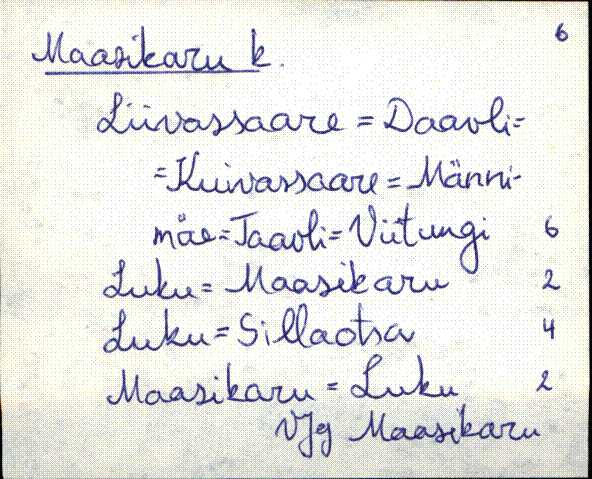 6
Maasikaru k.
Liivassaare = Daavli=
=Kuivassaare = Männi-
mäe=Taavli=Viitungi 6
Luku= Maasikaru 2
Luku=Sillaotsa 4
Maasikaru = Luku 2
VJg Maasikaru